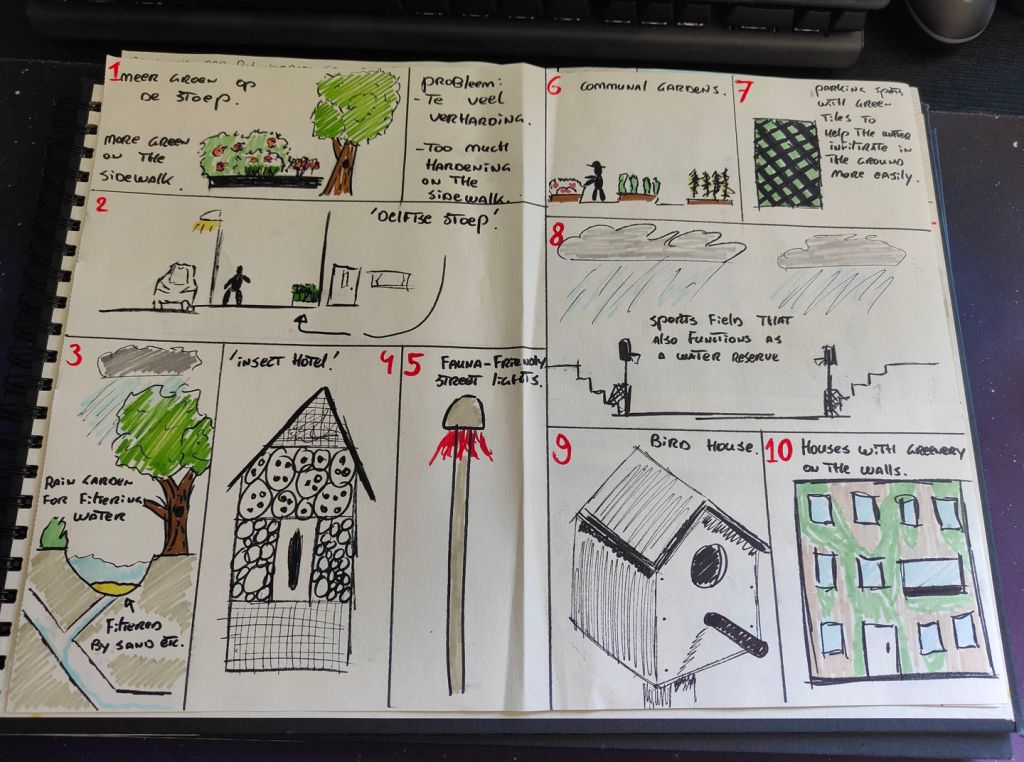 1 MEER GROEN OP
DE STOEP.
MORE GREEN
ON THE
SIDEWALK.
PROBLEEM:
- TE VEEL
VERHARDING.
- TOO MUCH
HARDENING
ON THE
SIDEWALK.
2
'DELFTSE STOEP'.
3
RAIN GARDEN
FOR FILTERING
WATER
FILTERED
BY SAND
'INSECT HOTEL'
4
5 FAUNA-FRIENDLY
STREET LIGHTS.
6 COMMUNAL GARDENS.
7 PARKING SPOTS
WITH GREEN
TILES TO
HELP THE WATER
INFILTRATE IN
THE GROUND
MORE EASILY.
8
SPORTS FIELD THAT
ALSO FUNCTIONS AS
A WATER RESERVE
9 BIRD HOUSE.
10 HOUSES WITH GREENERY
ON THE WALLS.